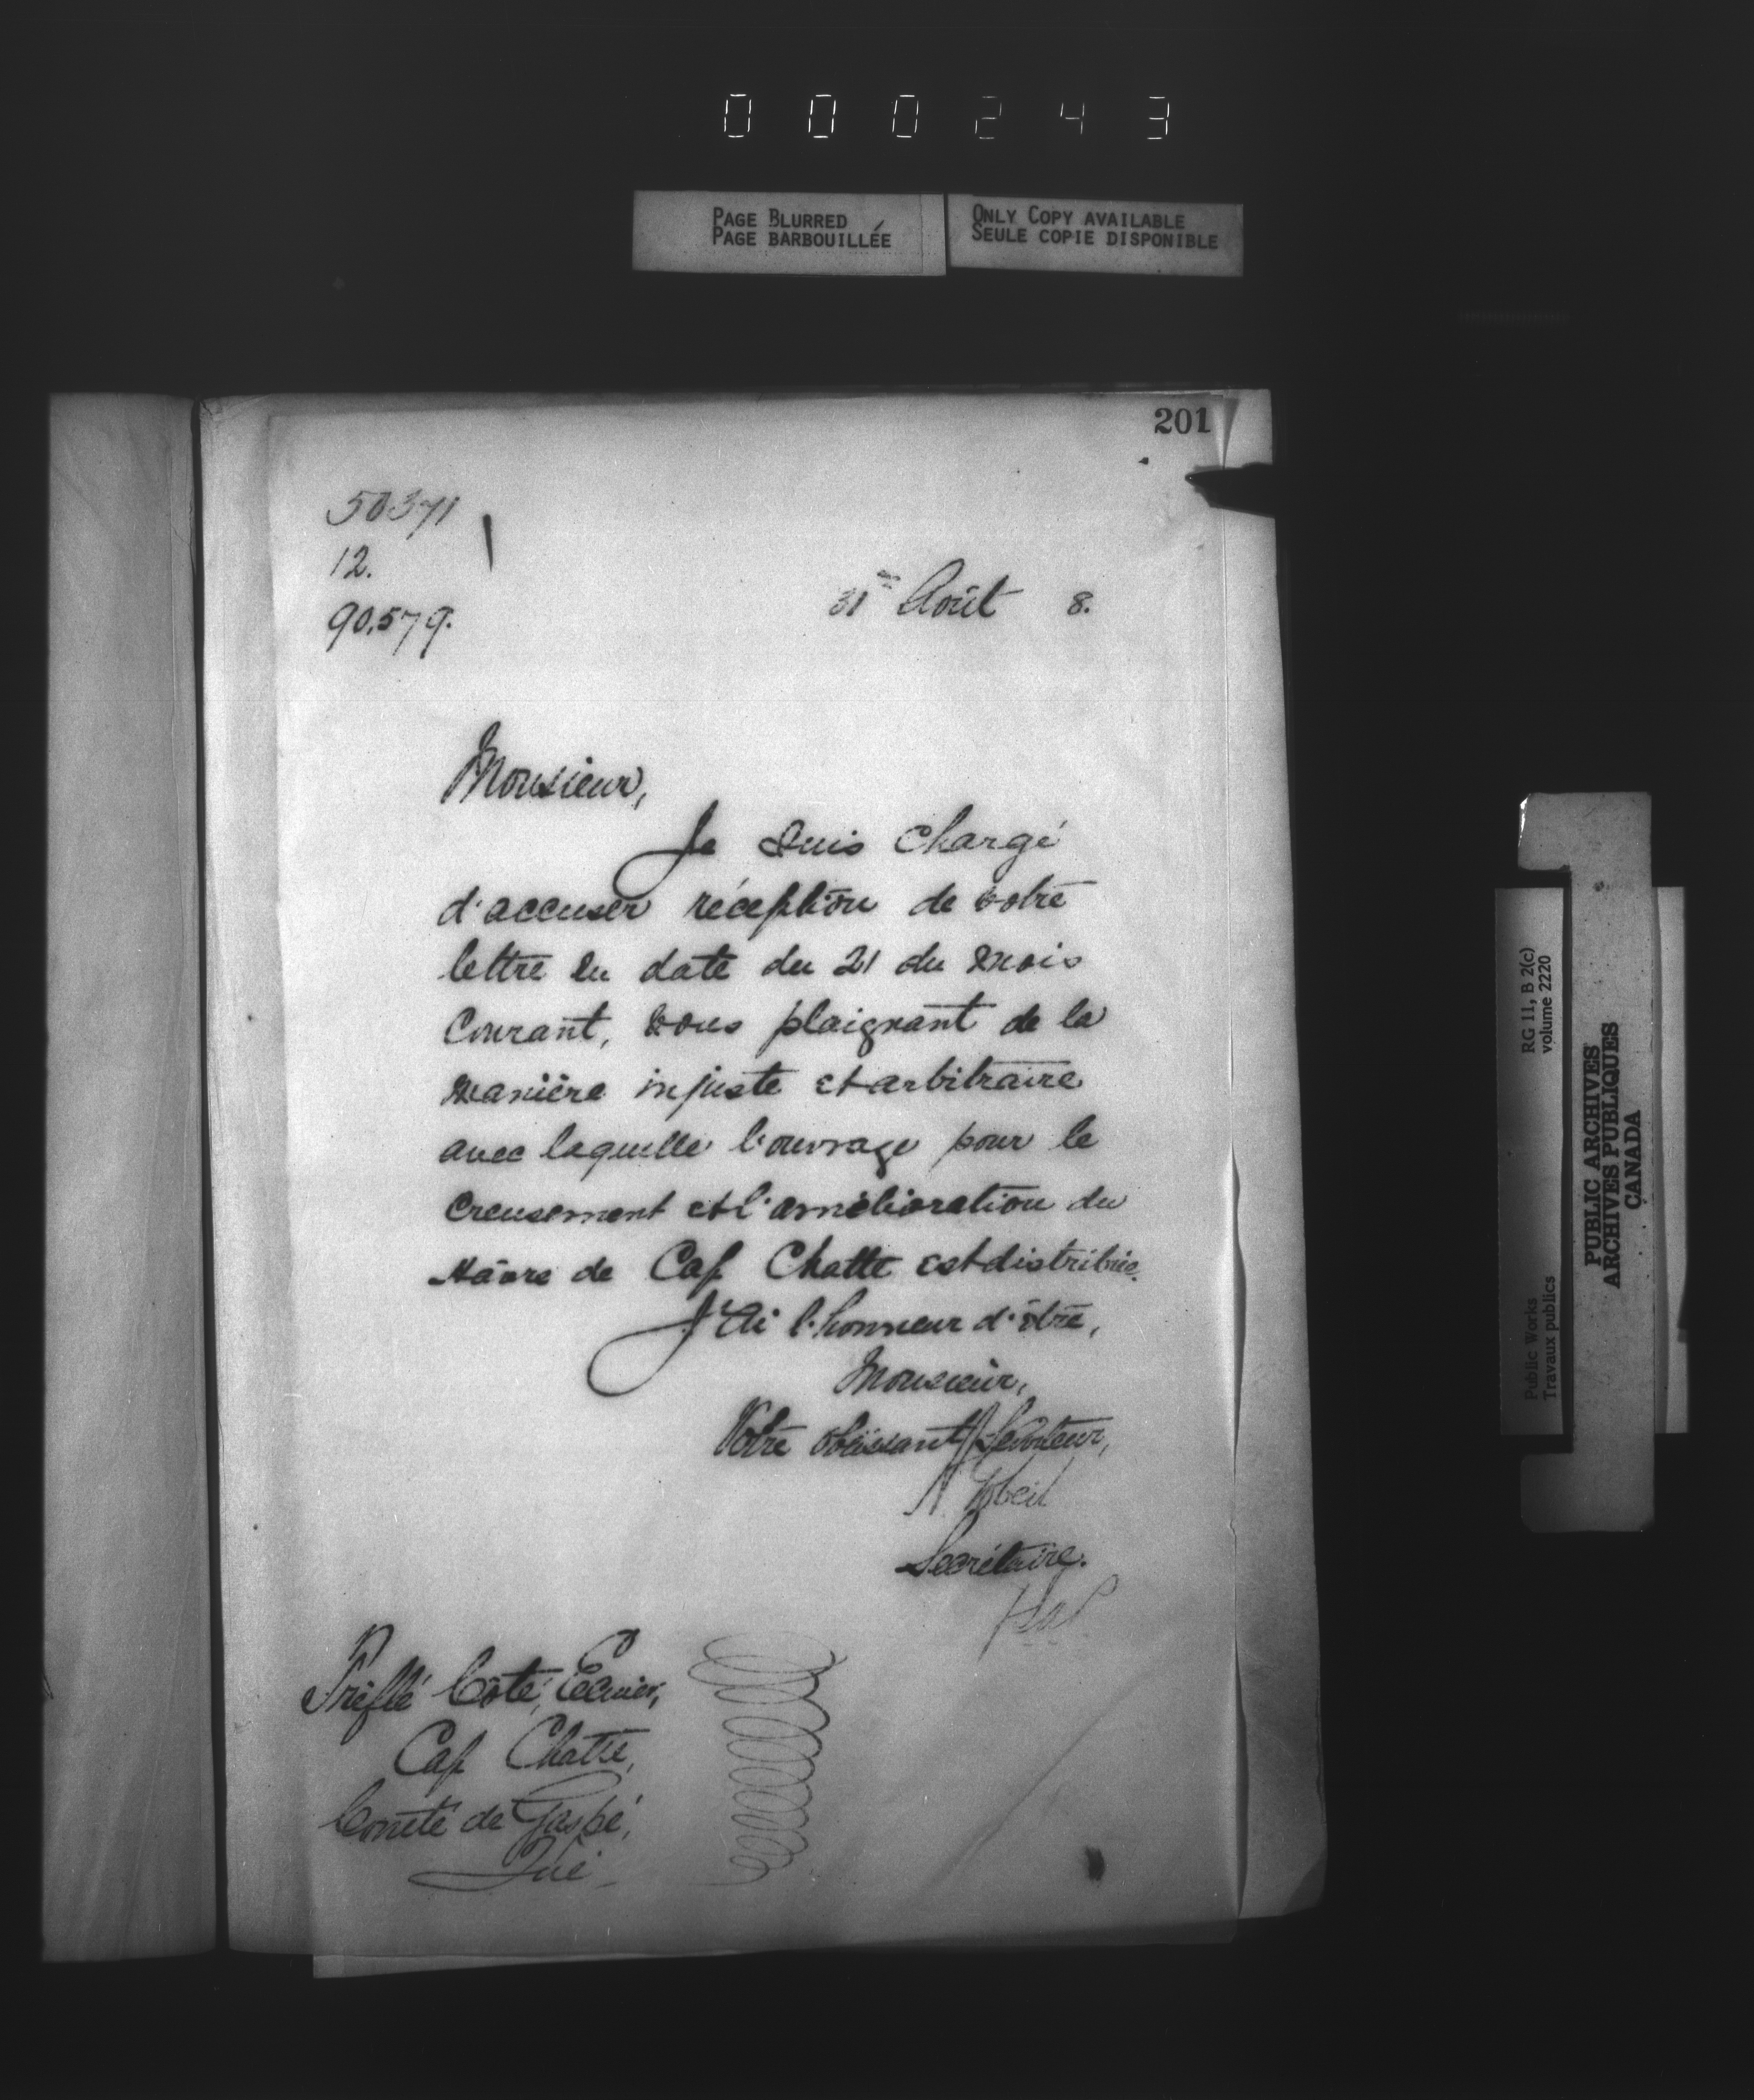 000243
PAGE BLURRED
PAGE BARBOUILLÉE
ONLY COPY AVAILABLE
SEULE COPIE DISPONIBLE
201
50371
12.
90,579.
31 Août 8.
Monsieur,
Je suis chargé
d'accuser réception de votre
lettre en date du 21 du mois
Courant, vous plaignant de la
manière injuste et arbitraire
avec laquelle l'ouvrage pour le
creusement et l'amélioration du
Hâvre de Cap Chatte est distribuée.
J'ai l'honneur d'être,
Monsieur,
Votre obéissant Serviteur,
A Gobeil
Secrétaire.
Trefflé Coté, Ecuier,
Cap Chatte,
Comté de Gaspé,
Qué
RG 11, B 2(c)
volume 2220
Public Works
Travaux publics
PUBLIC ARCHIVES
ARCHIVES PUBLIQUES
CANADA